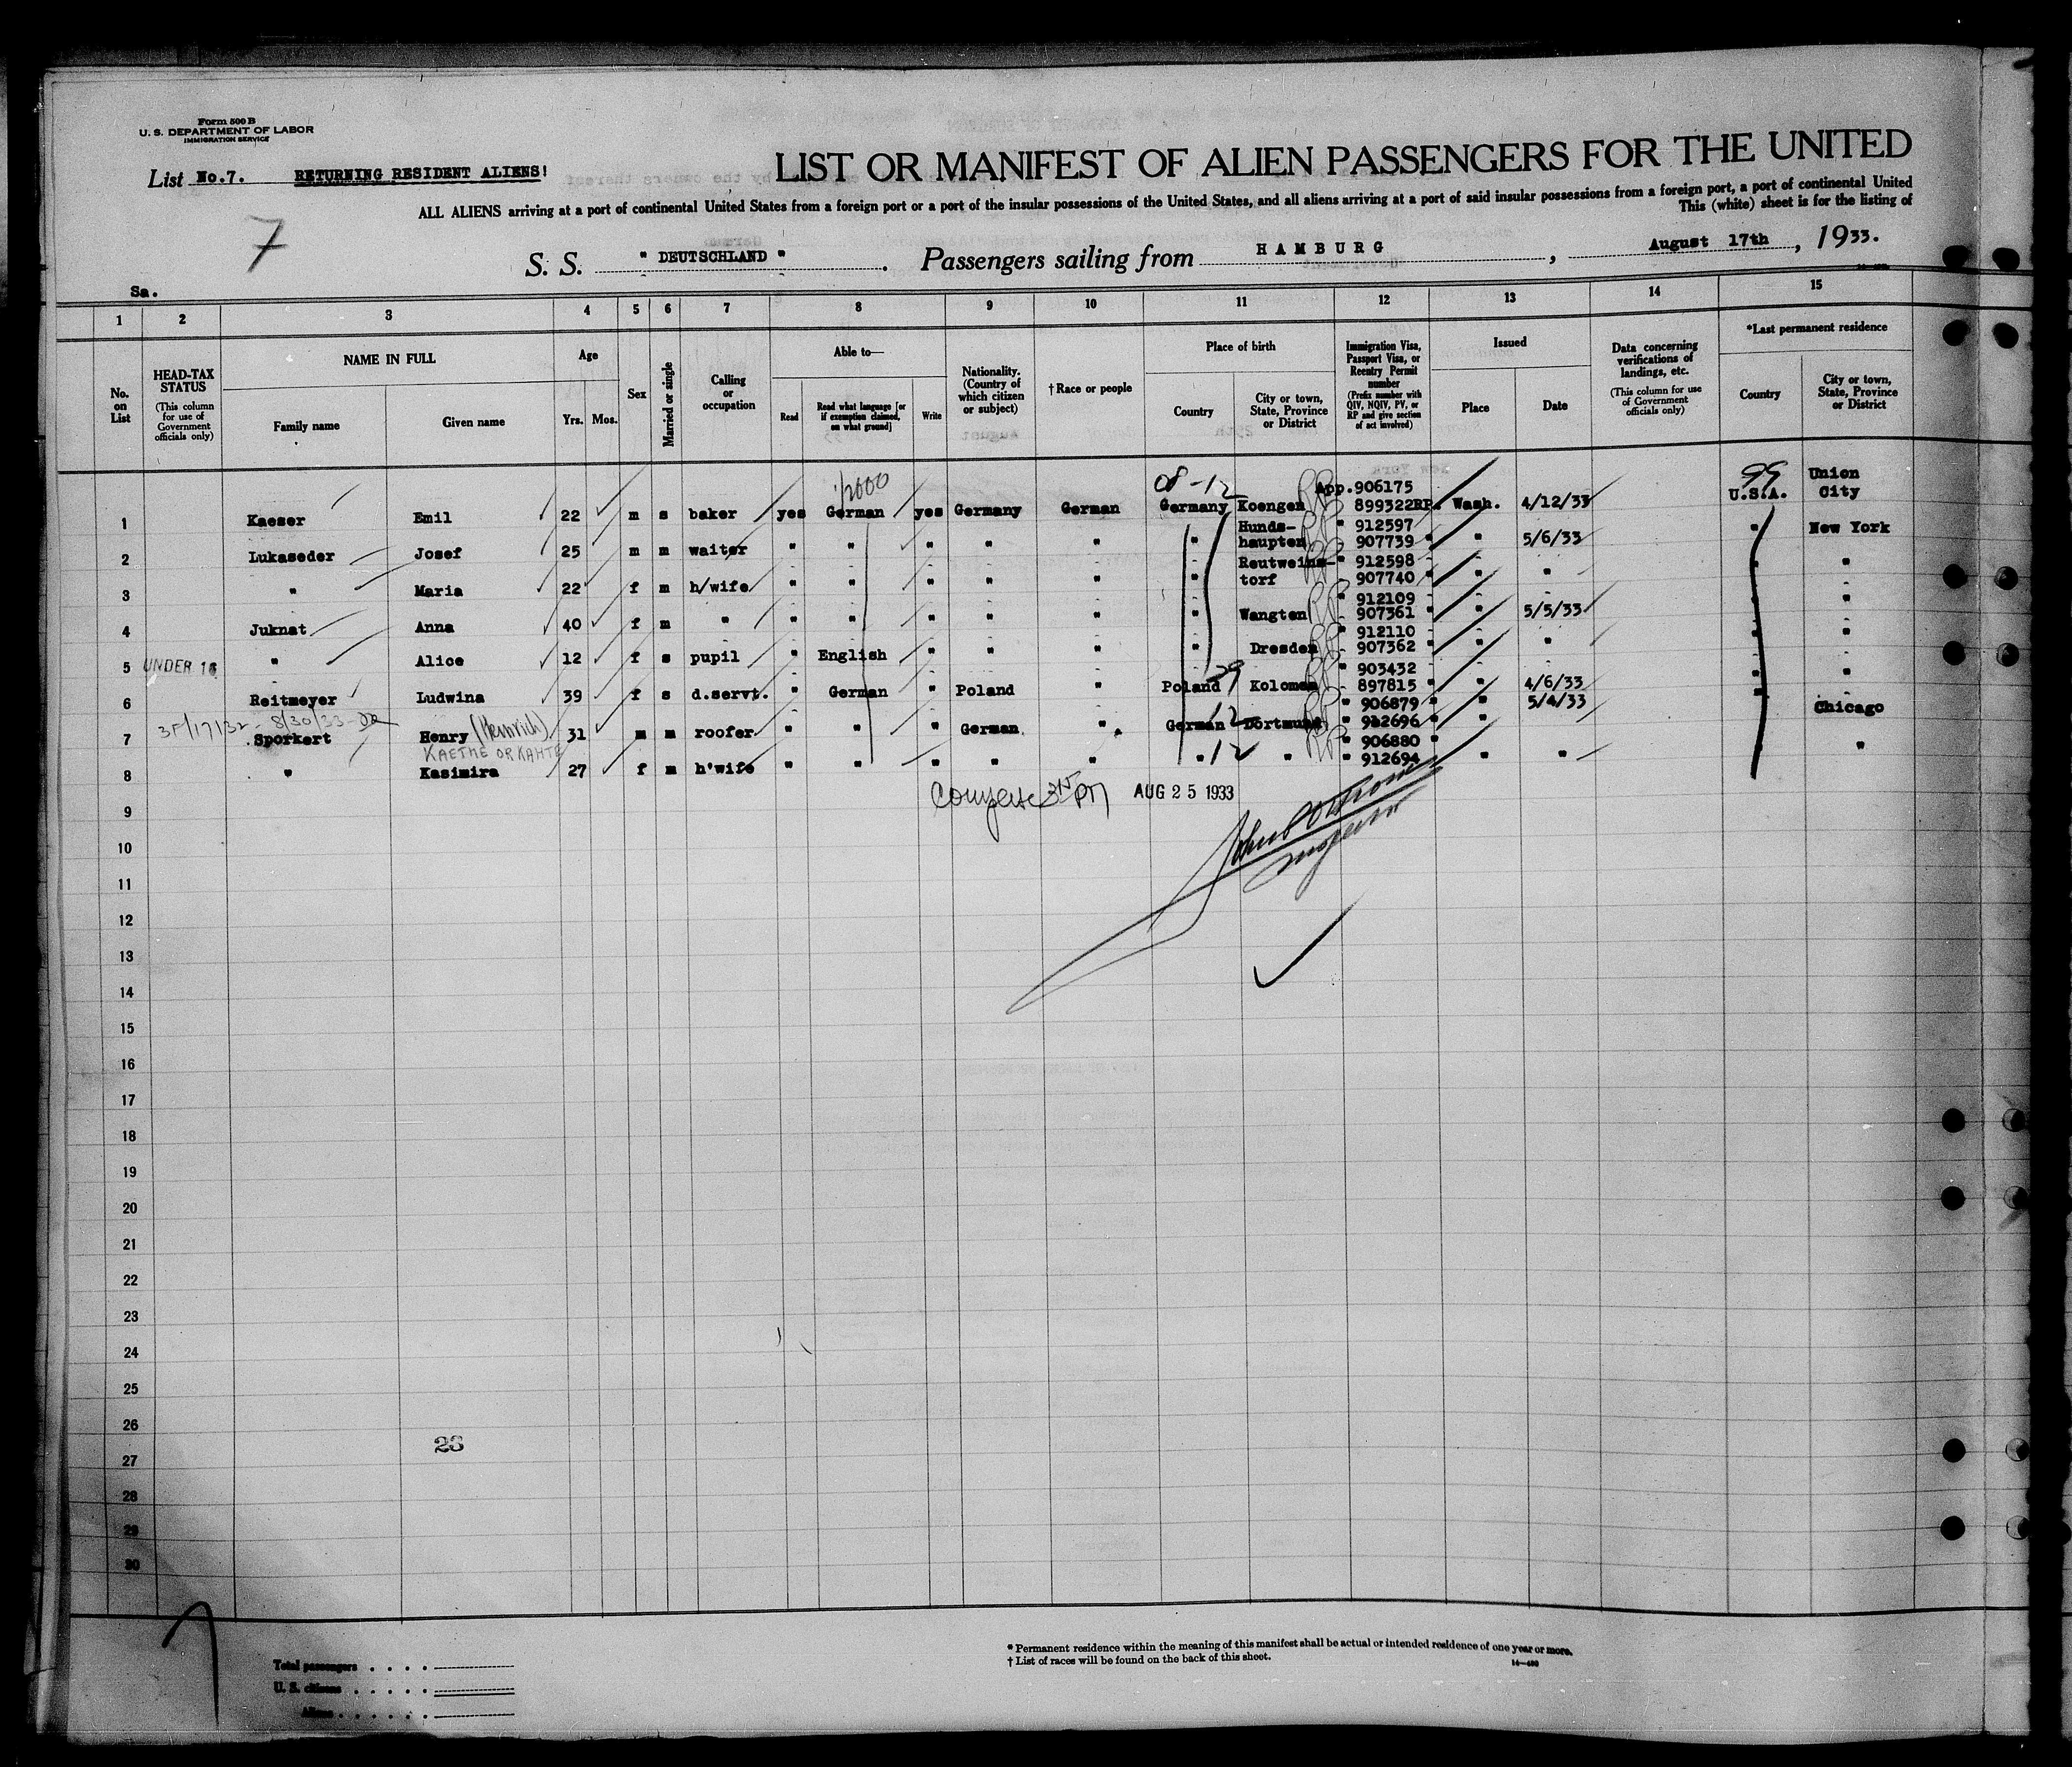 Form 500 B
U. S. DEPARTMENT OF LABOR
IMMIGRATION SERVICE
List No.7. RETURNING RESIDENT ALIENS!
LIST OR MANIFEST OF ALIEN PASSENGERS FOR THE UNITED
ALL ALIENS arriving at a port of continental United States from a foreign port or a port of the insular possessions of the United States, and all aliens arriving at a port of said insular possessions from a foreign port, a port of continental United
This (white) sheet is for the listing of
7
S. S. " DEUTSCHLAND ". Passengers sailing from HAMBURG, August 17th, 1933.
Sa.
1 2 3 4 5 6 7 8 9 10 11 12 13 14 15
No. on List
HEAD-TAX STATUS (This column for use of Government officials only)
NAME IN FULL
Family name
Given name
Age
Yrs. Mos.
Sex
Married or single
Calling or occupation
Able to—
Read
Read what language [or if exemption claimed, on what ground]
Write
Nationality. (Country of which citizen or subject)
†Race or people
Place of birth
Country
City or town, State, Province or District
Immigration Visa, Passport Visa, or Reentry Permit number (Prefix number with QIV, NQIV, PV, or RP and give section of act involved)
Issued
Place
Date
Data concerning verifications of landings, etc. (This column for use of Government officials only)
*Last permanent residence
Country
City or town, State, Province or District
08-12 99
1 Kaeser Emil 22 m s baker yes German yes Germany German Germany Koengen App.906175 899322RP. Wash. 4/12/33 U.S.A. Union City
2 Lukaseder Josef 25 m m waiter " " " " " " Hunds-haupten " 912597 " 907739 " " 5/6/33 " New York
3 " Maria 22 f m h/wife " " " " " " Reutweins-torf " 912598 " 907740 " " " " "
4 Juknat Anna 40 f m " " " " " " " Wangten " 912109 " 907361 " " 5/5/33 " "
5 UNDER 16 " Alice 12 f s pupil " English " " " " Dresden " 912110 " 907362 " " " " "
6 Reitmeyer Ludwina 39 f s d.servt. " German " Poland " Poland Kolomea " 903432 897815 " " 4/6/33 " "
7 Sporkert Henry (Heinrich) 31 m m roofer " " " German " German 12 Dortmund " 906879 " 912696 " " 5/4/33 " Chicago
KAETHE OR KAHTE
8 " Kasimira 27 f m h'wife " " " " " " 12 " " 906880 " " 912694 " " " "
AUG 25 1933
9
10
11
12
13
14
15
16
17
18
19
20
21
22
23
24
25
26
23
27
28
29
30
Total passengers
U. S. citizens
Aliens
* Permanent residence within the meaning of this manifest shall be actual or intended residence of one year or more.
† List of races will be found on the back of this sheet.
14—480